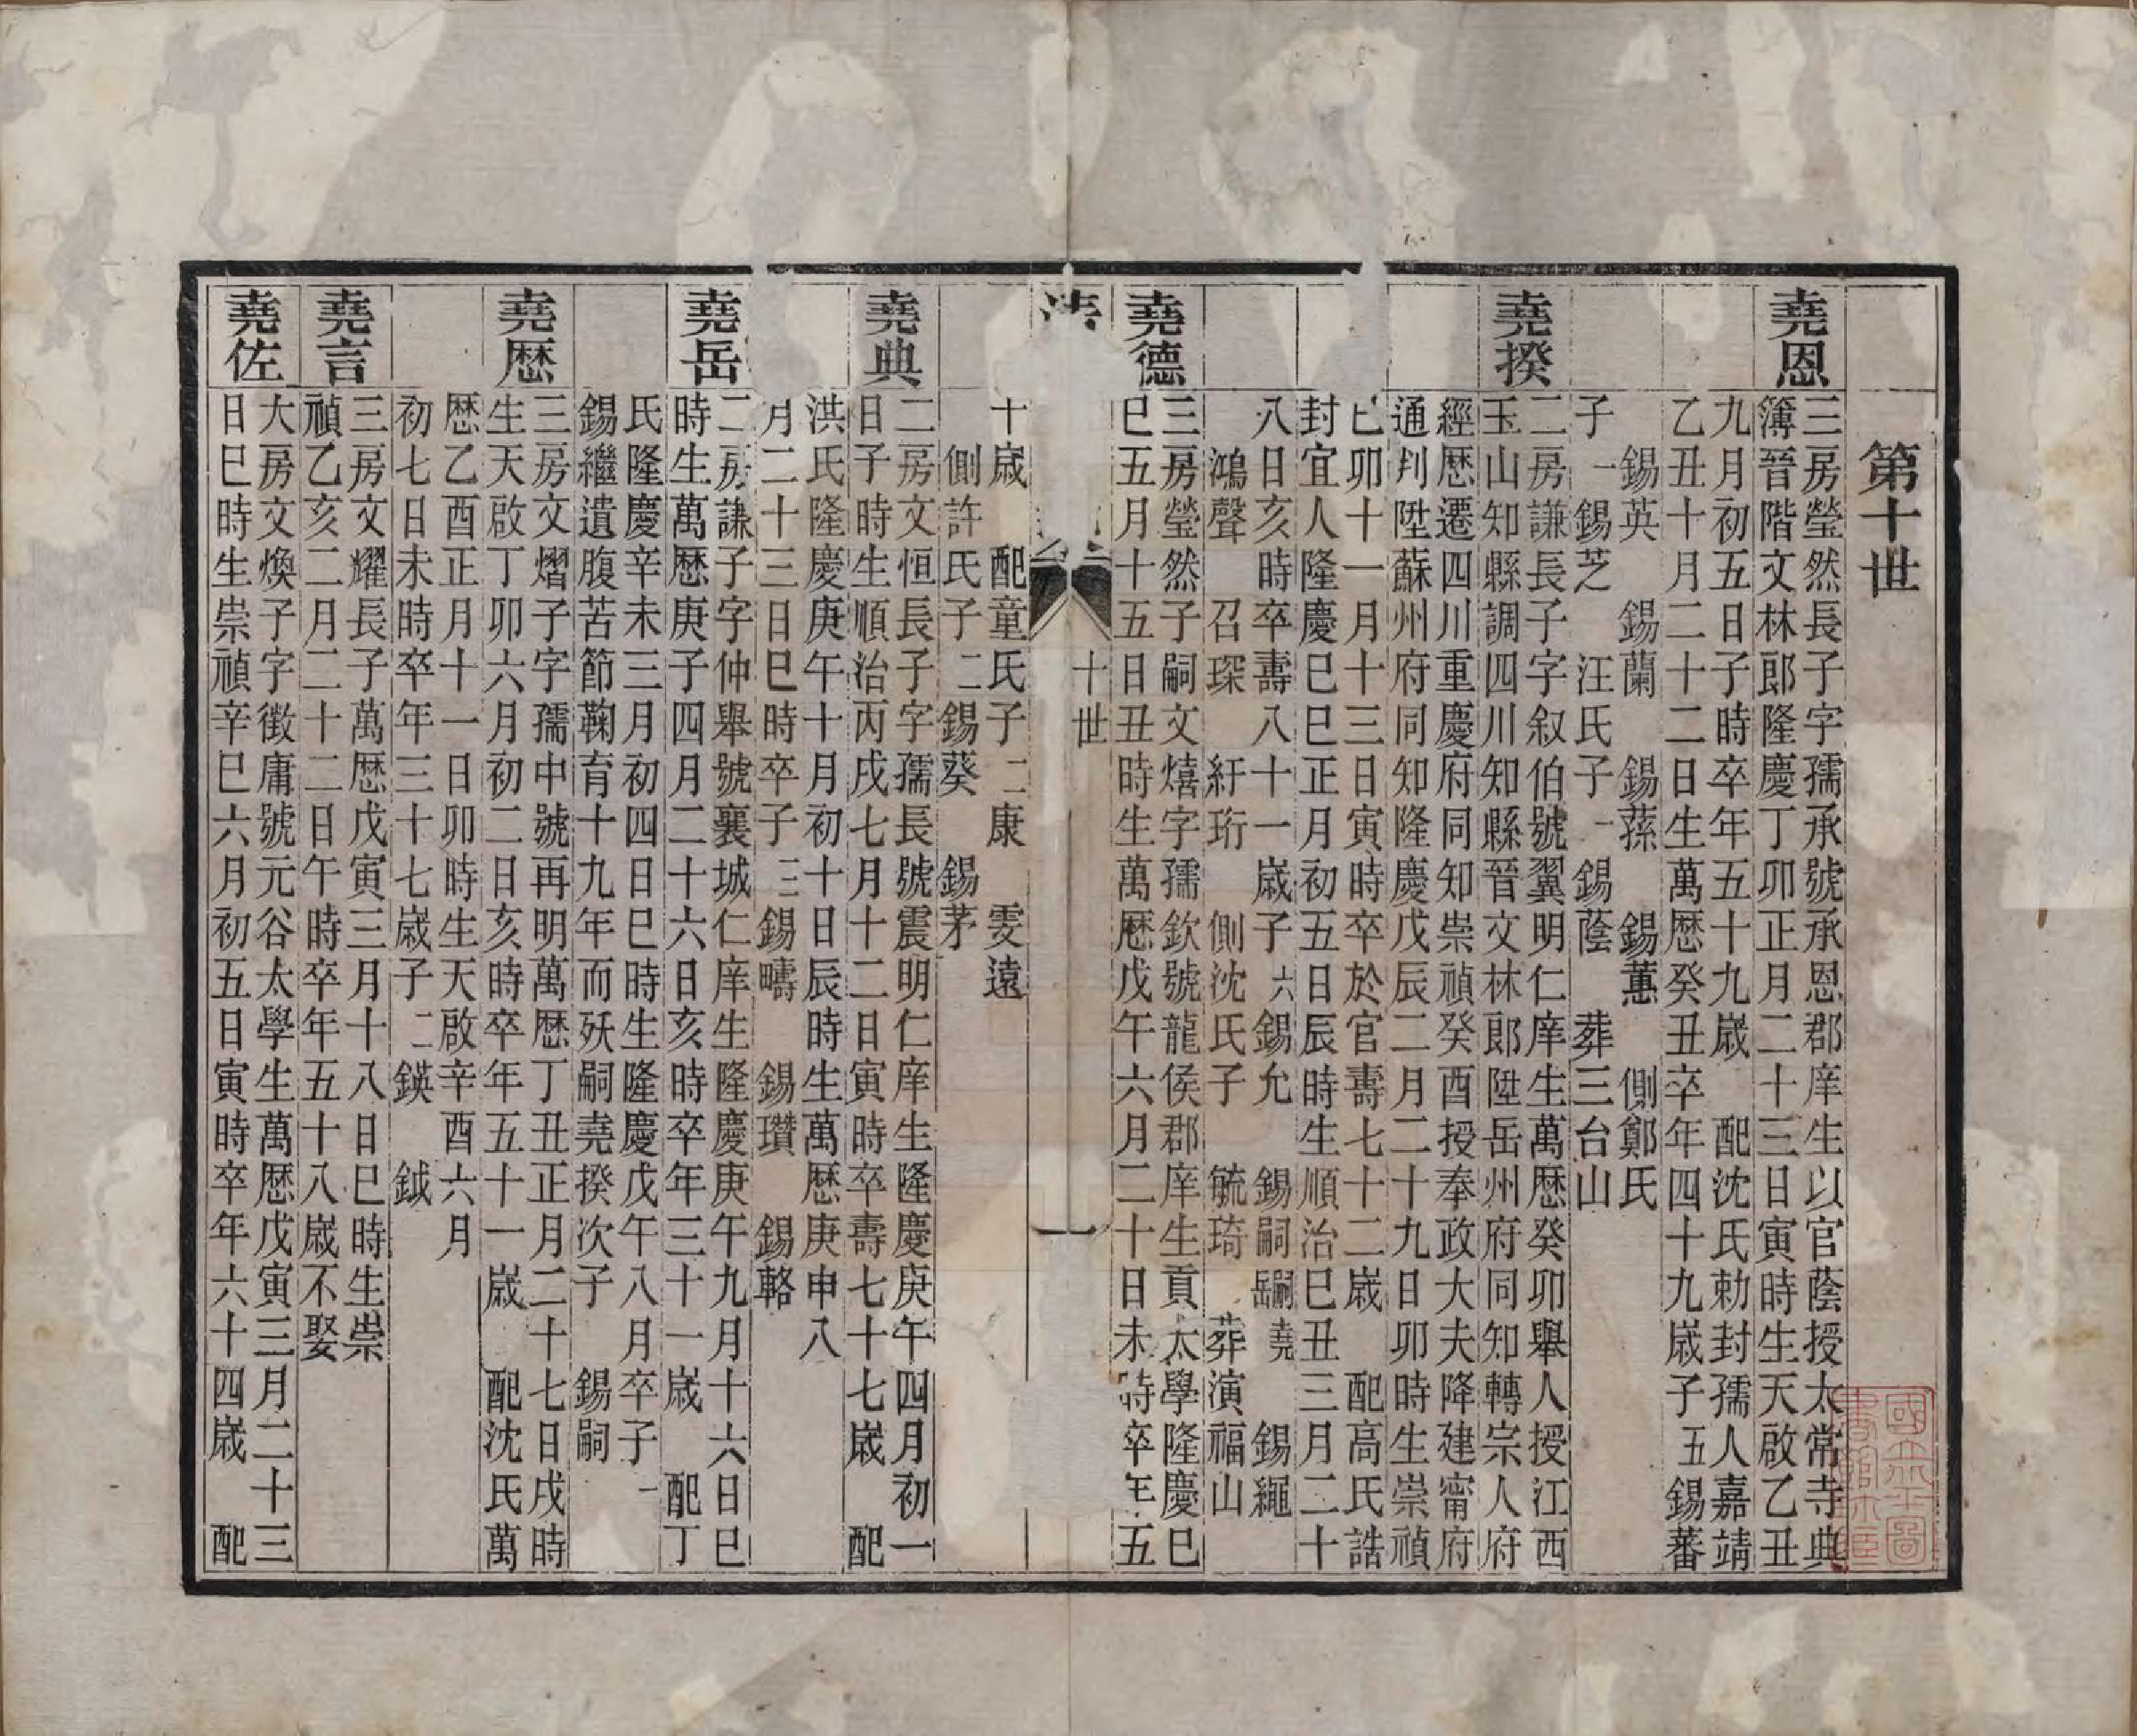 第十世
堯恩
三房瑩然長子字孺承號承恩郡庠生以官蔭授太常寺典
簿晉階文林郎隆慶丁卯正月二十三日寅時生天啟乙丑
九月初五日子時卒年五十九歲 配沈氏勅封孺人嘉靖
乙丑十月二十二日生萬歷癸丑卒年四十九歲子五錫蕃
錫英 錫蘭 錫蓀 錫蕙 側鄭氏
子一錫芝 汪氏子一錫蔭 葬三台山
堯揆
二房謙長子字叙伯號翼明仁庠生萬歷癸卯舉人授江西
玉山知縣調四川知縣晉文林郎陞岳州府同知轉宗人府
經歷遷四川重慶府同知崇禎癸酉授奉政大夫降建甯府
通判陞蘇州府同知隆慶戊辰二月二十九日卯時生崇禎
己卯十一月十三日寅時卒於官壽七十二歲 配高氏誥
封宜人隆慶巳巳正月初五日辰時生順治巳丑三月二十
八日亥時卒壽八十一歲子六錫允 錫嗣嗣堯岳 錫繩
鴻聲 召琛 紆珩 側沈氏子 毓琦 葬演福山
堯德
三房瑩然子嗣文熺字孺欽號龍侯郡庠生貢太學隆慶巳
巳五月十五日丑時生萬歷戊午六月二十日未時卒年五
十世
一
十歲 配童氏子二康 雯遠
側許氏子二錫葵 錫茅
堯典
二房文恒長子字孺長號震明仁庠生隆慶庚午四月初一
日子時生順治丙戌七月十二日寅時卒壽七十七歲 配
洪氏隆慶庚午十月初十日辰時生萬歷庚申八
月二十三日巳時卒子三錫疇 錫瓚 錫輅
堯岳
二房謙子字仲舉號襄城仁庠生隆慶庚午九月十六日巳
時生萬歷庚子四月二十六日亥時卒年三十一歲 配丁
氏隆慶辛未三月初四日巳時生隆慶戊午八月卒子一
錫繼遺腹苦節鞠育十九年而殀嗣堯揆次子 錫嗣
堯歷
三房文熠子字孺中號再明萬歷丁丑正月二十七日戌時
生天啟丁卯六月初二日亥時卒年五十一歲 配沈氏萬
歷乙酉正月十一日卯時生天啟辛酉六月
初七日未時卒年三十七歲子二鍈 鉞
堯言
三房文耀長子萬歷戊寅三月十八日巳時生崇
禎乙亥二月二十二日午時卒年五十八歲不娶
堯佐
大房文煥子字徵庸號元谷太學生萬歷戊寅三月二十三
日巳時生崇禎辛巳六月初五日寅時卒年六十四歲 配